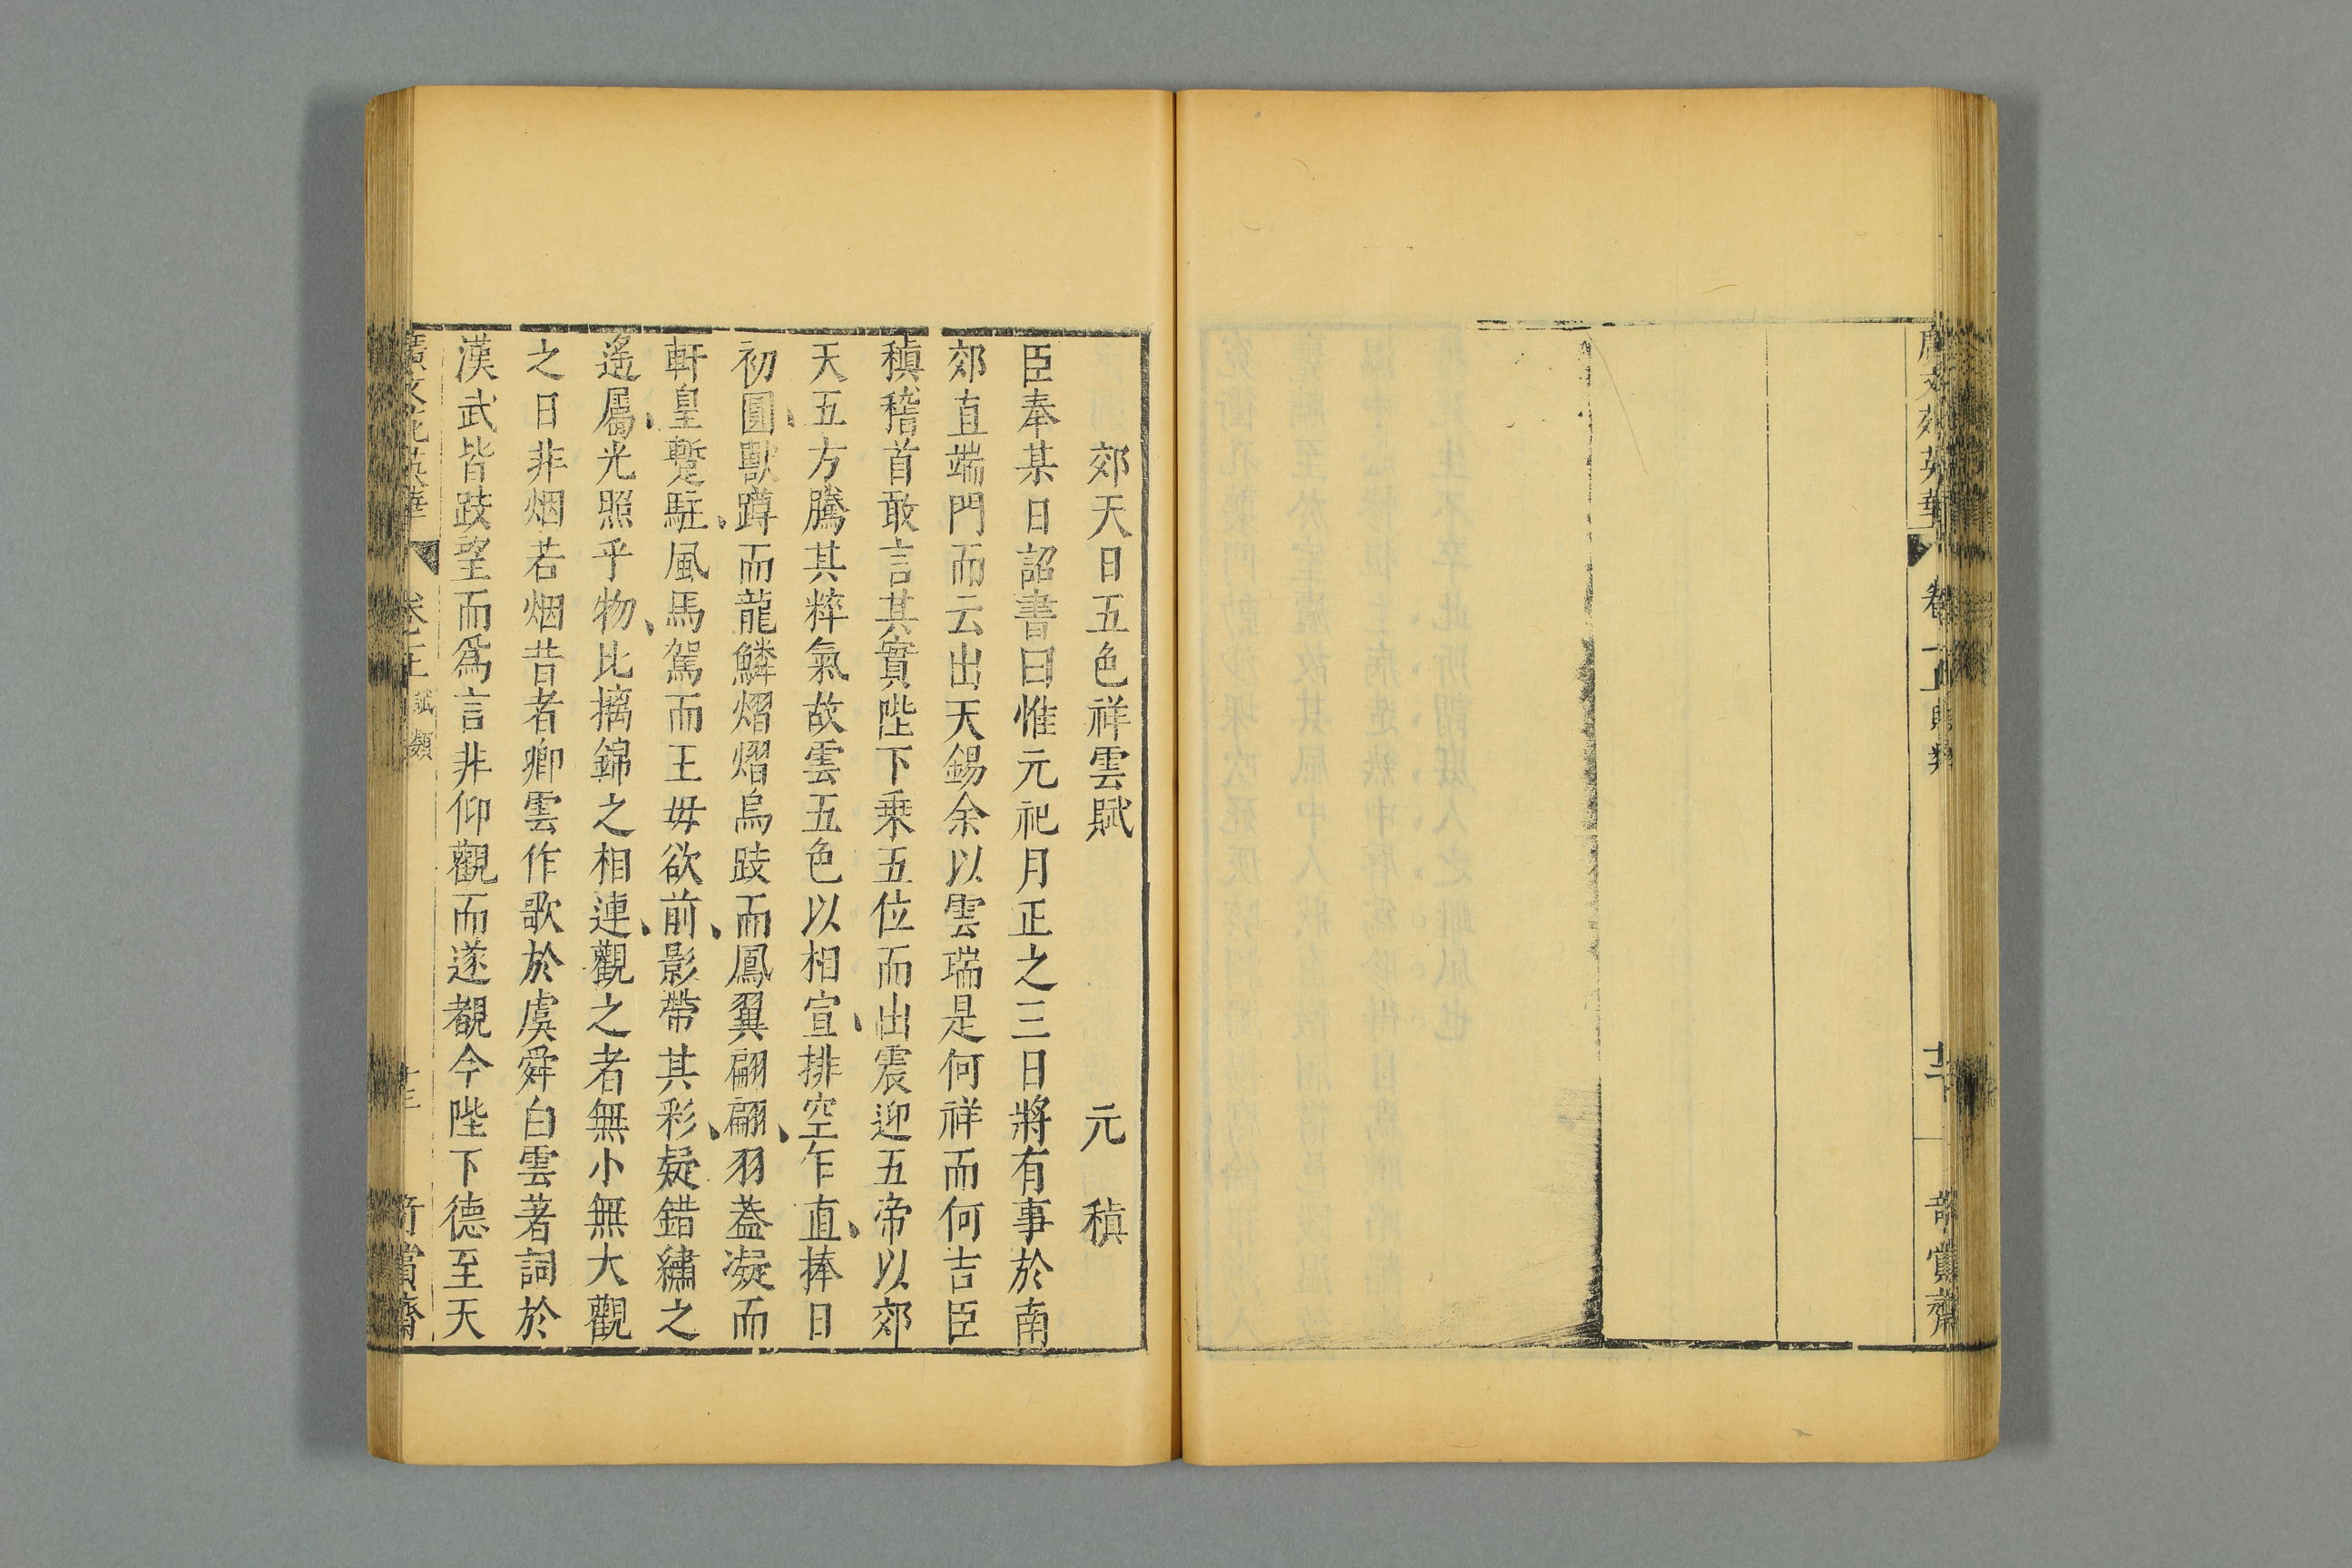 郊天日五色祥雲賦 元稹
臣奉某日詔書曰惟元祀月正之三日將有事於南
郊直端門而云出天錫余以雲瑞是何祥而何吉臣
稹稽首敢言其實陛下乗五位而出震迎五帝以郊
天五方騰其粹氣故雲五色以相宣排空乍直捧日
初圓獸蹲而龍鱗熠熠烏跂而鳳翼翩翩羽葢凝而
軒皇蹔駐風馬駕而王母欲前影帶其彩疑錯繡之
遙屬光照乎物比摛錦之相連觀之者無小無大觀
之日非烟若烟昔者卿雲作歌於虞舜白雲著詞於
漢武皆跂望而爲言非仰觀而遂覩今陛下德至天